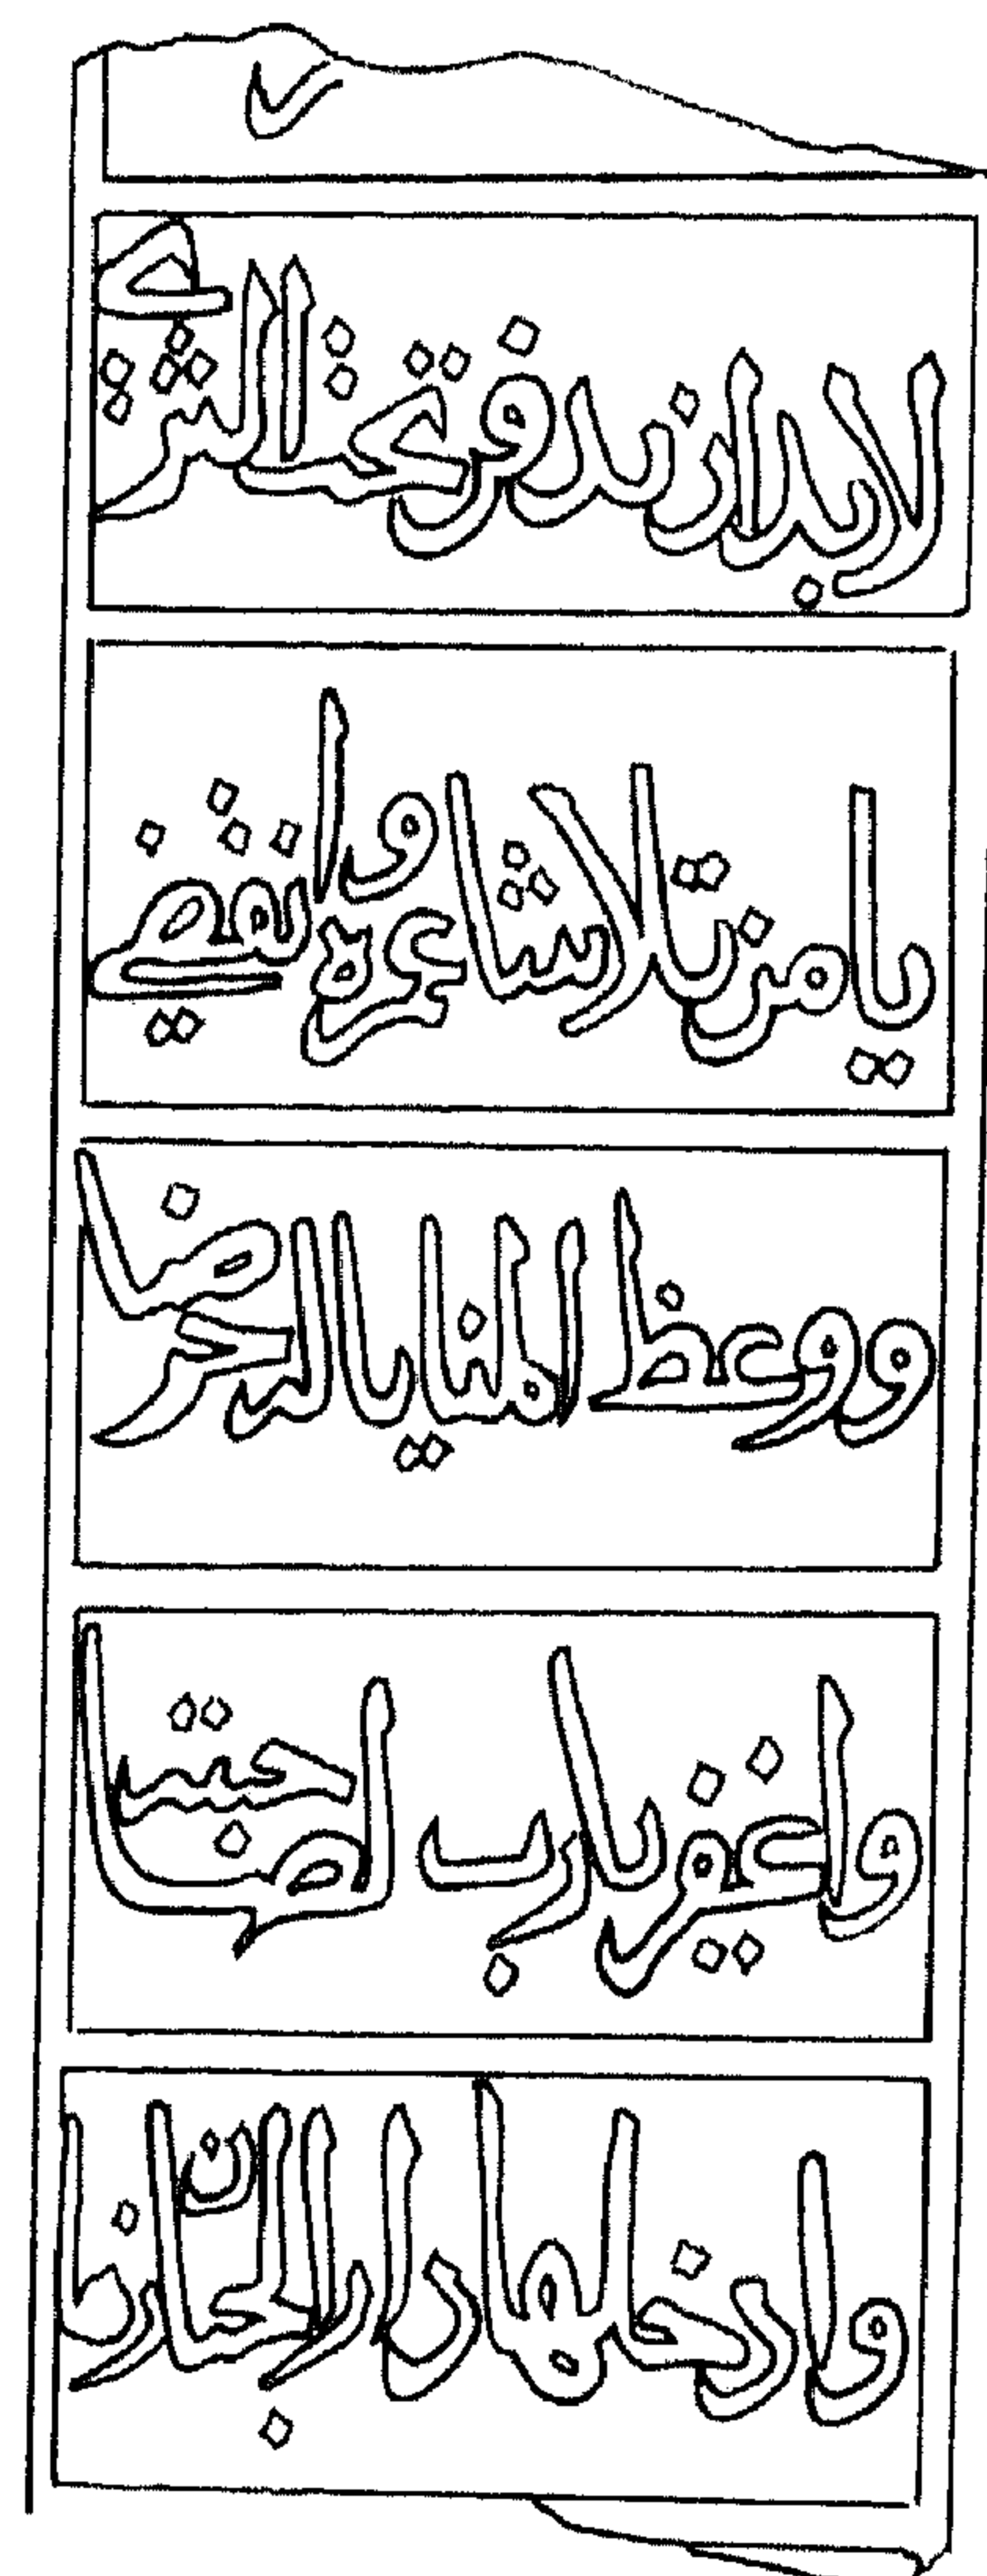 لابد ان ندفن تحت الثرى
يا من تلاشا عمره وانقضى
ووعظ المنايا له حرضا
واغفر يارب لصاحبتها
وادخلها دار الجنان